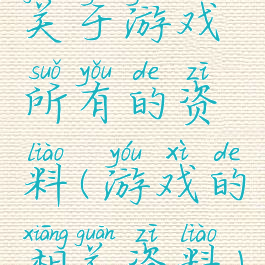 关于游戏
suǒ yǒu de zī
所有的资
liào yóu xì de
料(游戏的
xiāng guān zī liào
相关资料)